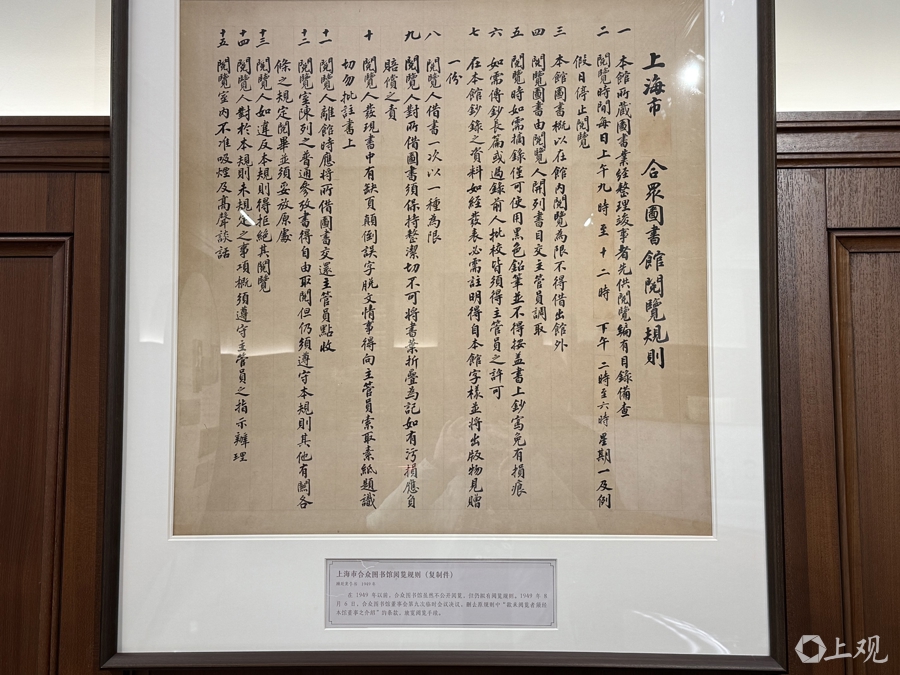 上海市 合眾圖書館閱覽規則
一 本館所藏圖書業經整理竣事者先供閱覽編有目錄備查
二 閱覽時間每日上午九時至十二時 下午 二時至六時星期一及例
假日停止閱覽
三 本館圖書概以在館內閱覽為限不得借出館外
四 閱覽圖書由閱覽人開列書目交主管員調取
五 閱覽時如需摘錄僅可使用黑色鉛筆並不得按蓋書上鈔寫免有損痕
六 如需傳鈔長篇或過錄前人批校皆須得主管員之許可
七 在本館鈔錄之資料如經發表必需註明得自本館字樣並將出版物見贈
一份
八 閱覽人借書一次以一種為限
九 閱覽人對所借圖書須保持整潔切不可將書葉折疊為記如有污損應負
賠償之責
十 閱覽人發現書中有缺頁顛倒誤字脫文情事得向主管員索取素紙題識
切勿批註書上
十一 閱覽人離館時應將所借圖書交還主管員點收
十二 閱覽室陳列之普通參攷書得自由取閱但仍須遵守本規則其他有關各
條之規定閱畢並須妥放原處
十三 閱覽人如違反本規則得拒絕其閱覽
十四 閱覽人對於本規則未規定之事項概須遵守主管員之指示辦理
十五 閱覽室內不准吸煙及高聲談話
上海市合众图书馆阅览规则（复制件）
1949年
在 1949 年以前，合众图书馆虽然不公开阅览，但仍制有阅览规则。1949 年 8
月 6 日，合众图书馆董事会第九次临时会议决议，删去原规则中“欲来阅览者须经
本馆董事之介绍”的条款，放宽阅览手续。
上观